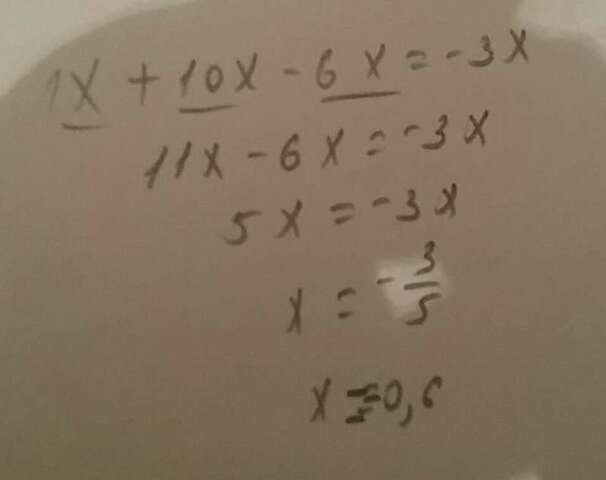 1x + 10x - 6x = -3x
11x - 6x = -3x
5x = -3x
x = -3/5
x = -0,6